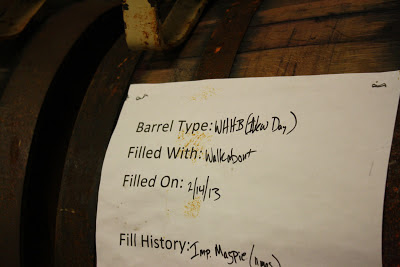 Barrel Type: WHHB (New Day)
Filled With: Walkabout
Filled On: 2/14/13
Fill History: Imp. Magpie